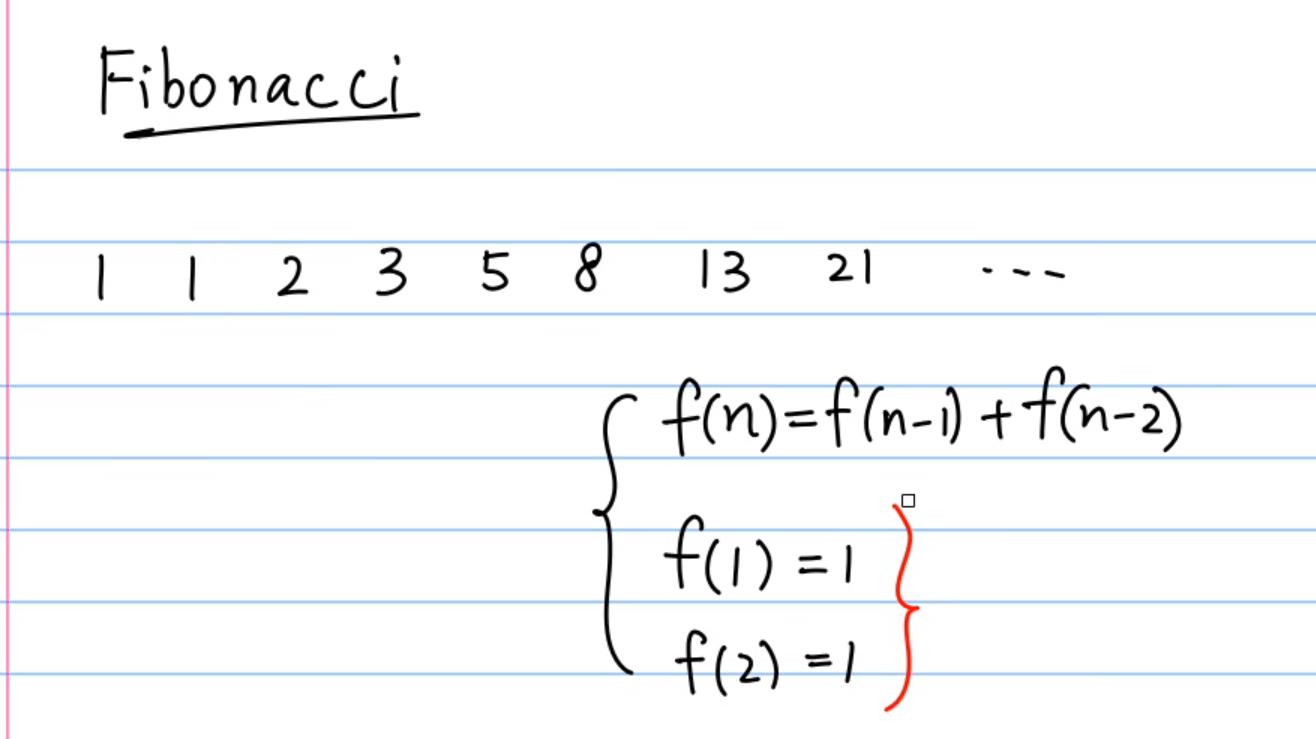 Fibonacci
1 1 2 3 5 8 13 21 ---
f(n)=f(n-1)+f(n-2)
f(1)=1
f(2)=1